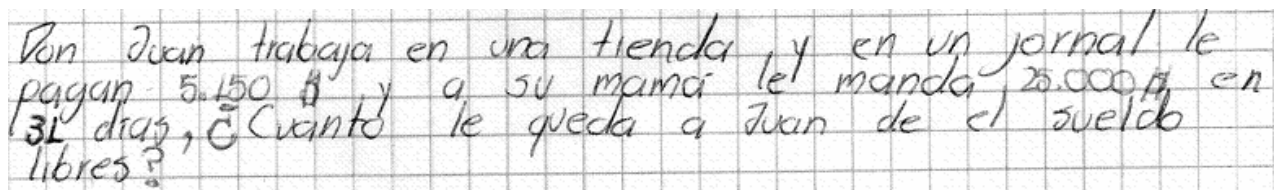 Don Juan trabaja en una tienda, y en un jornal le
pagan 5.150 $ y a su mamá le manda 25.000 $ en
31 días, ¿Cuánto le queda a Juan de el sueldo
libres?